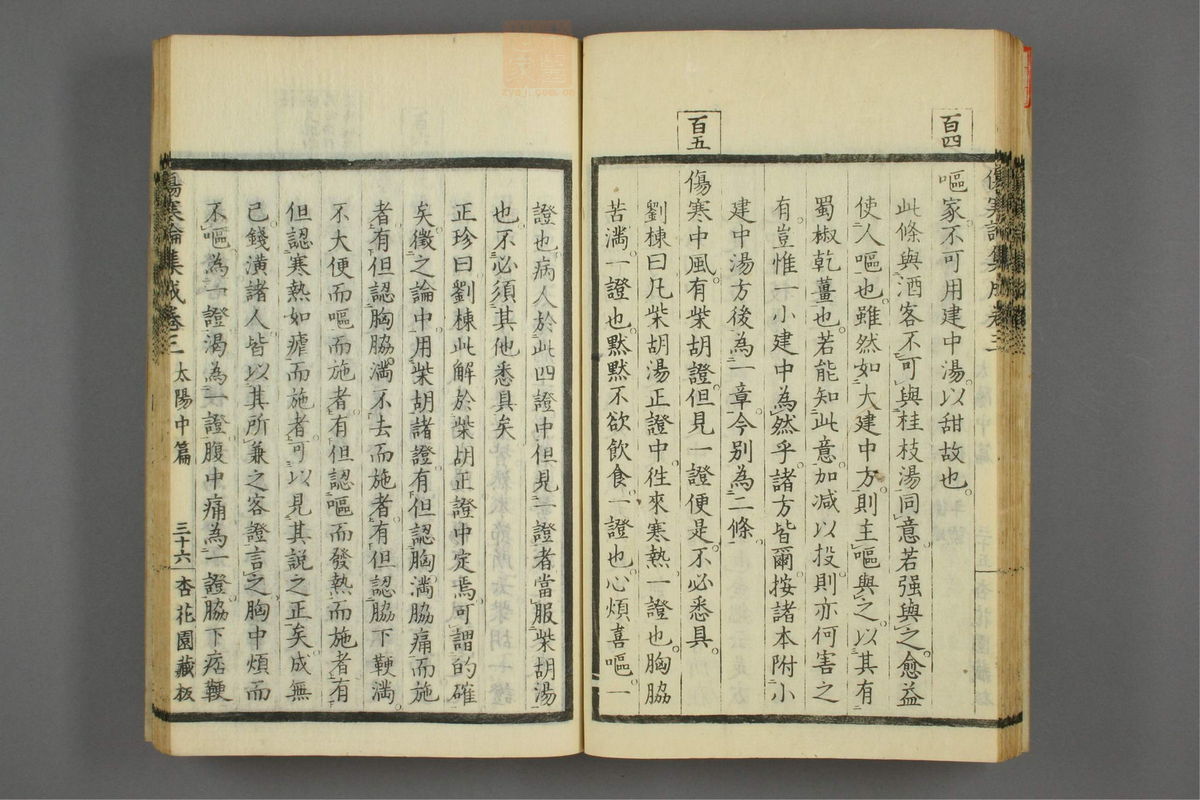 百四
嘔家不可用建中湯以甜故也
此條與酒客不可與桂枝湯同意若强與之愈益
使人嘔也雖然如大建中方則主嘔與之以其有
蜀椒乾薑也若能知此意加減以投則亦何害之
有豈惟一小建中為然乎諸方皆爾按諸本附小
建中湯方後為一章今別為二條
百五
傷寒中風有柴胡證但見一證便是不必悉具
劉棟曰凡柴胡湯正證中徃來寒熱一證也胸脇
苦滿一證也黙黙不欲飲食一證也心煩喜嘔一
證也病人於此四證中但見一證者當服柴胡湯
也不必須其他悉具矣
正珍曰劉棟此解於柴胡正證中定焉可謂的確
矣徵之論中用柴胡諸證有但認胸滿脇痛而施
者有但認胸脇滿不去而施者有但認脇下鞕滿
不大便而嘔而施者有但認嘔而發熱而施者有
但認寒熱如瘧而施者可以見其說之正矣成無
己錢潢諸人皆以其所兼之客證言之胸中煩而
不嘔為一證渴為一證腹中痛為一證脇下痞鞕
傷寒論集成卷三 太陽中篇 三十六 杏花園藏板